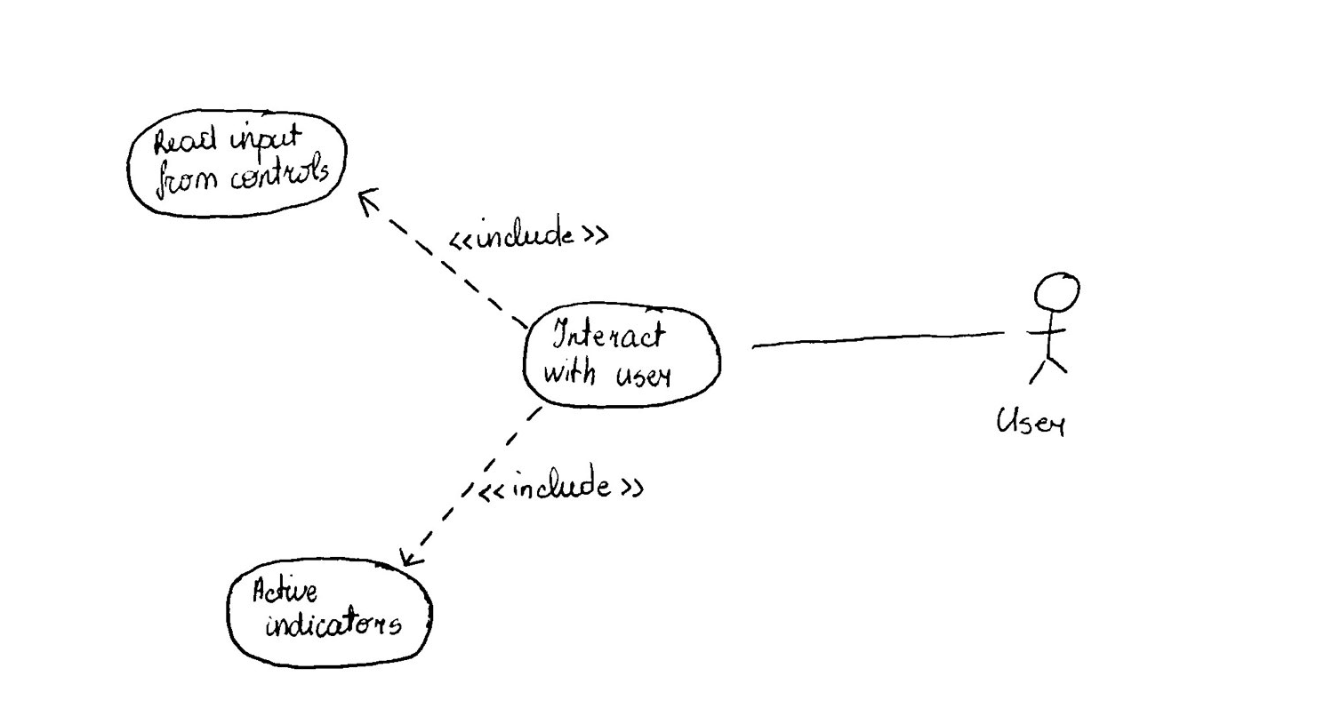 Read input
from controls
<<include>>
Interact
with user
User
<<include>>
Active
indicators